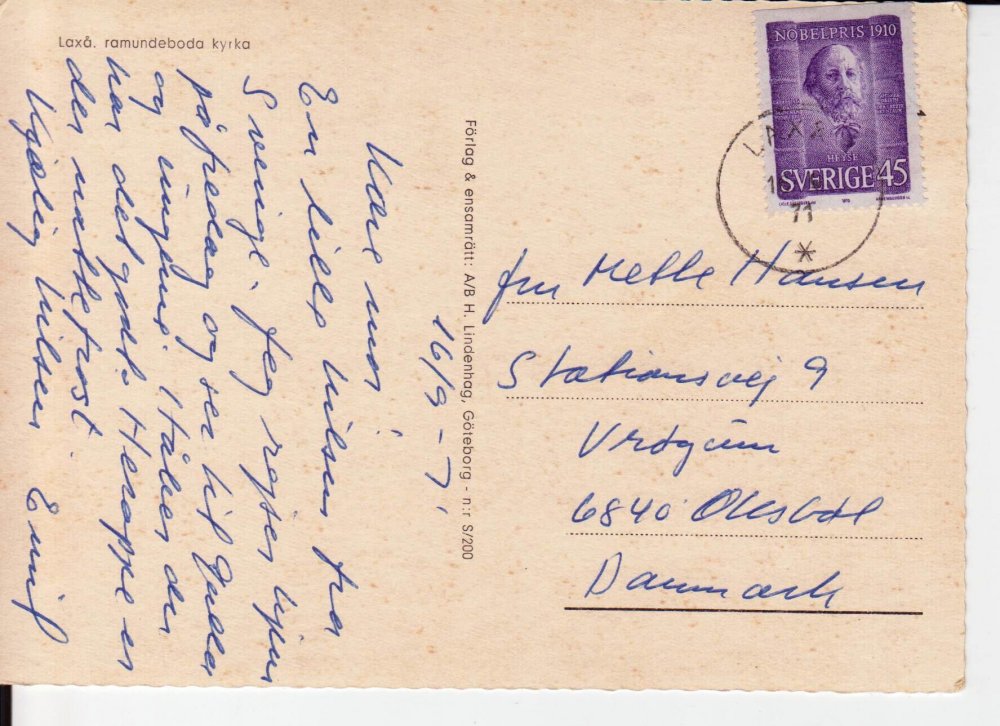 Laxå. ramundeboda kyrka
16/9-71
Kære mor!
En lille hilsen fra
Sverige. Jeg rejser hjem
på fredag og ser hil
og i
har det godt. Heroppe er
der nattefrost.
Kjælig hilsen Emil
Förlag & ensamrätt: A/B H. Lindenhag, Göteborg - n:r S/200
NOBELPRIS 1910
HEYSE
SVERIGE 45
LAXÅ
1
71
fru Mette Hansen
Stationsvej 9
Vrøgum
6840 Oksbøl
Danmark